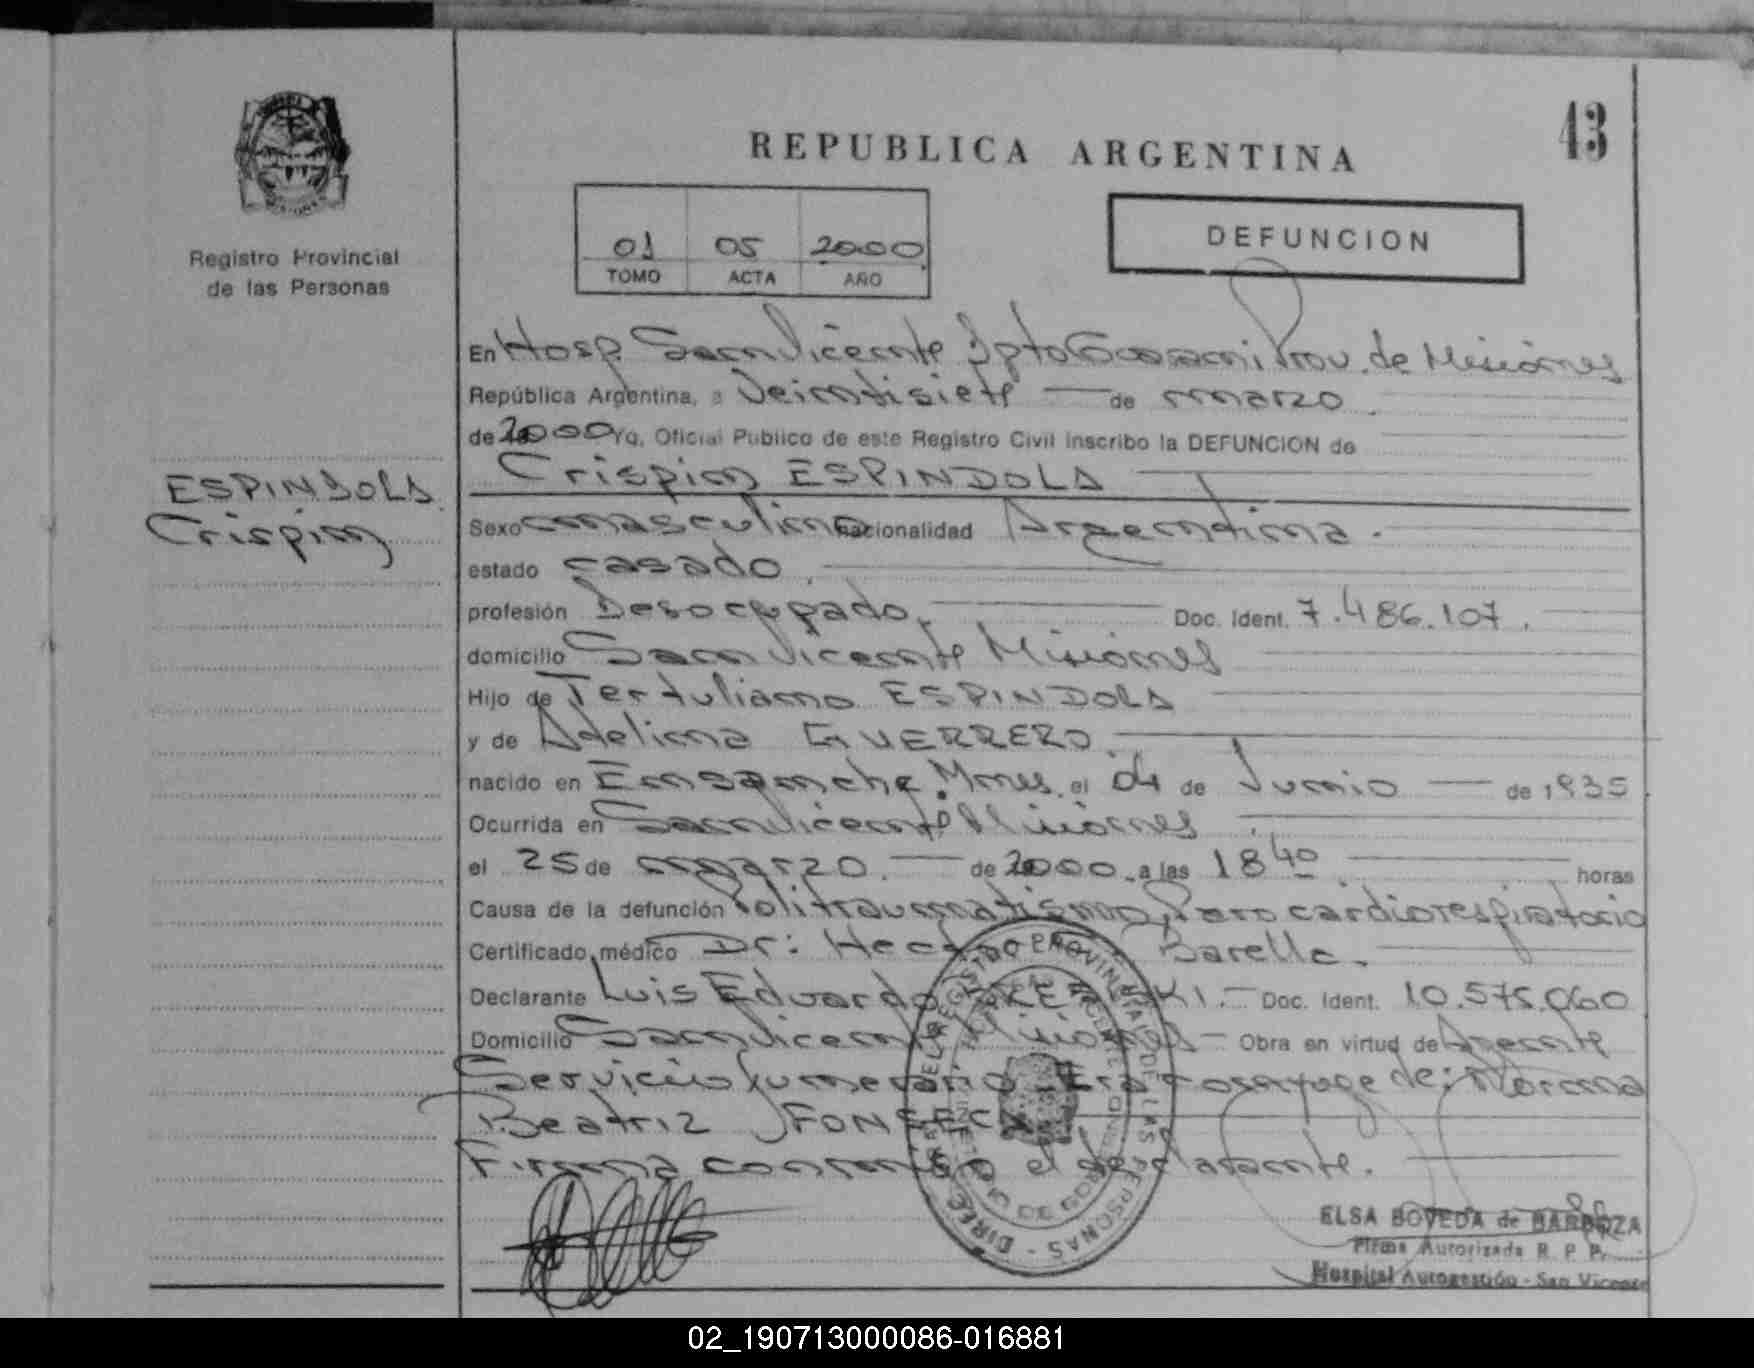 43
REPUBLICA ARGENTINA
01 05 2000
TOMO ACTA AÑO
DEFUNCION
Registro Provincial
de las Personas
ESPINDOLA
Crispin
En Hosp. San Vicente Dpto Guarani Prov. de Misiones
República Argentina, a Veintisiete de marzo
de 2000 Yo, Oficial Público de este Registro Civil inscribo la DEFUNCION de
Crispin ESPINDOLA
Sexo masculino nacionalidad Argentina.
estado casado.
profesión Desocupado. Doc. Ident. 7.486.107.
domicilio San Vicente Misiones
Hijo de Tertuliano ESPINDOLA
y de Adelina GUERRERO.
nacido en Ensanche Mnes. el 04 de Junio de 1935
Ocurrida en San Vicente Misiones.
el 25 de marzo. de 2000. a las 18 40 horas
Causa de la defunción Politraumatismo, Paro cardiorespiratorio
Certificado médico Dr: Hector Barella.
Declarante Luis Eduardo Doc. Ident. 10.575.060
Domicilio San Vicente Misiones Obra en virtud de Agente
Servicio funerario Era conyuge de: Norma
Beatriz FONSECA
Firma conmigo el declarante.
DIRECC. GRAL. DEL REGISTRO PROVINCIAL DE LAS PERSONAS
ELSA BOVEDA de BARBOZA
Firma Autorizada R. P. P.
Hospital Autogestión - San Vicente
02_190713000086-016881